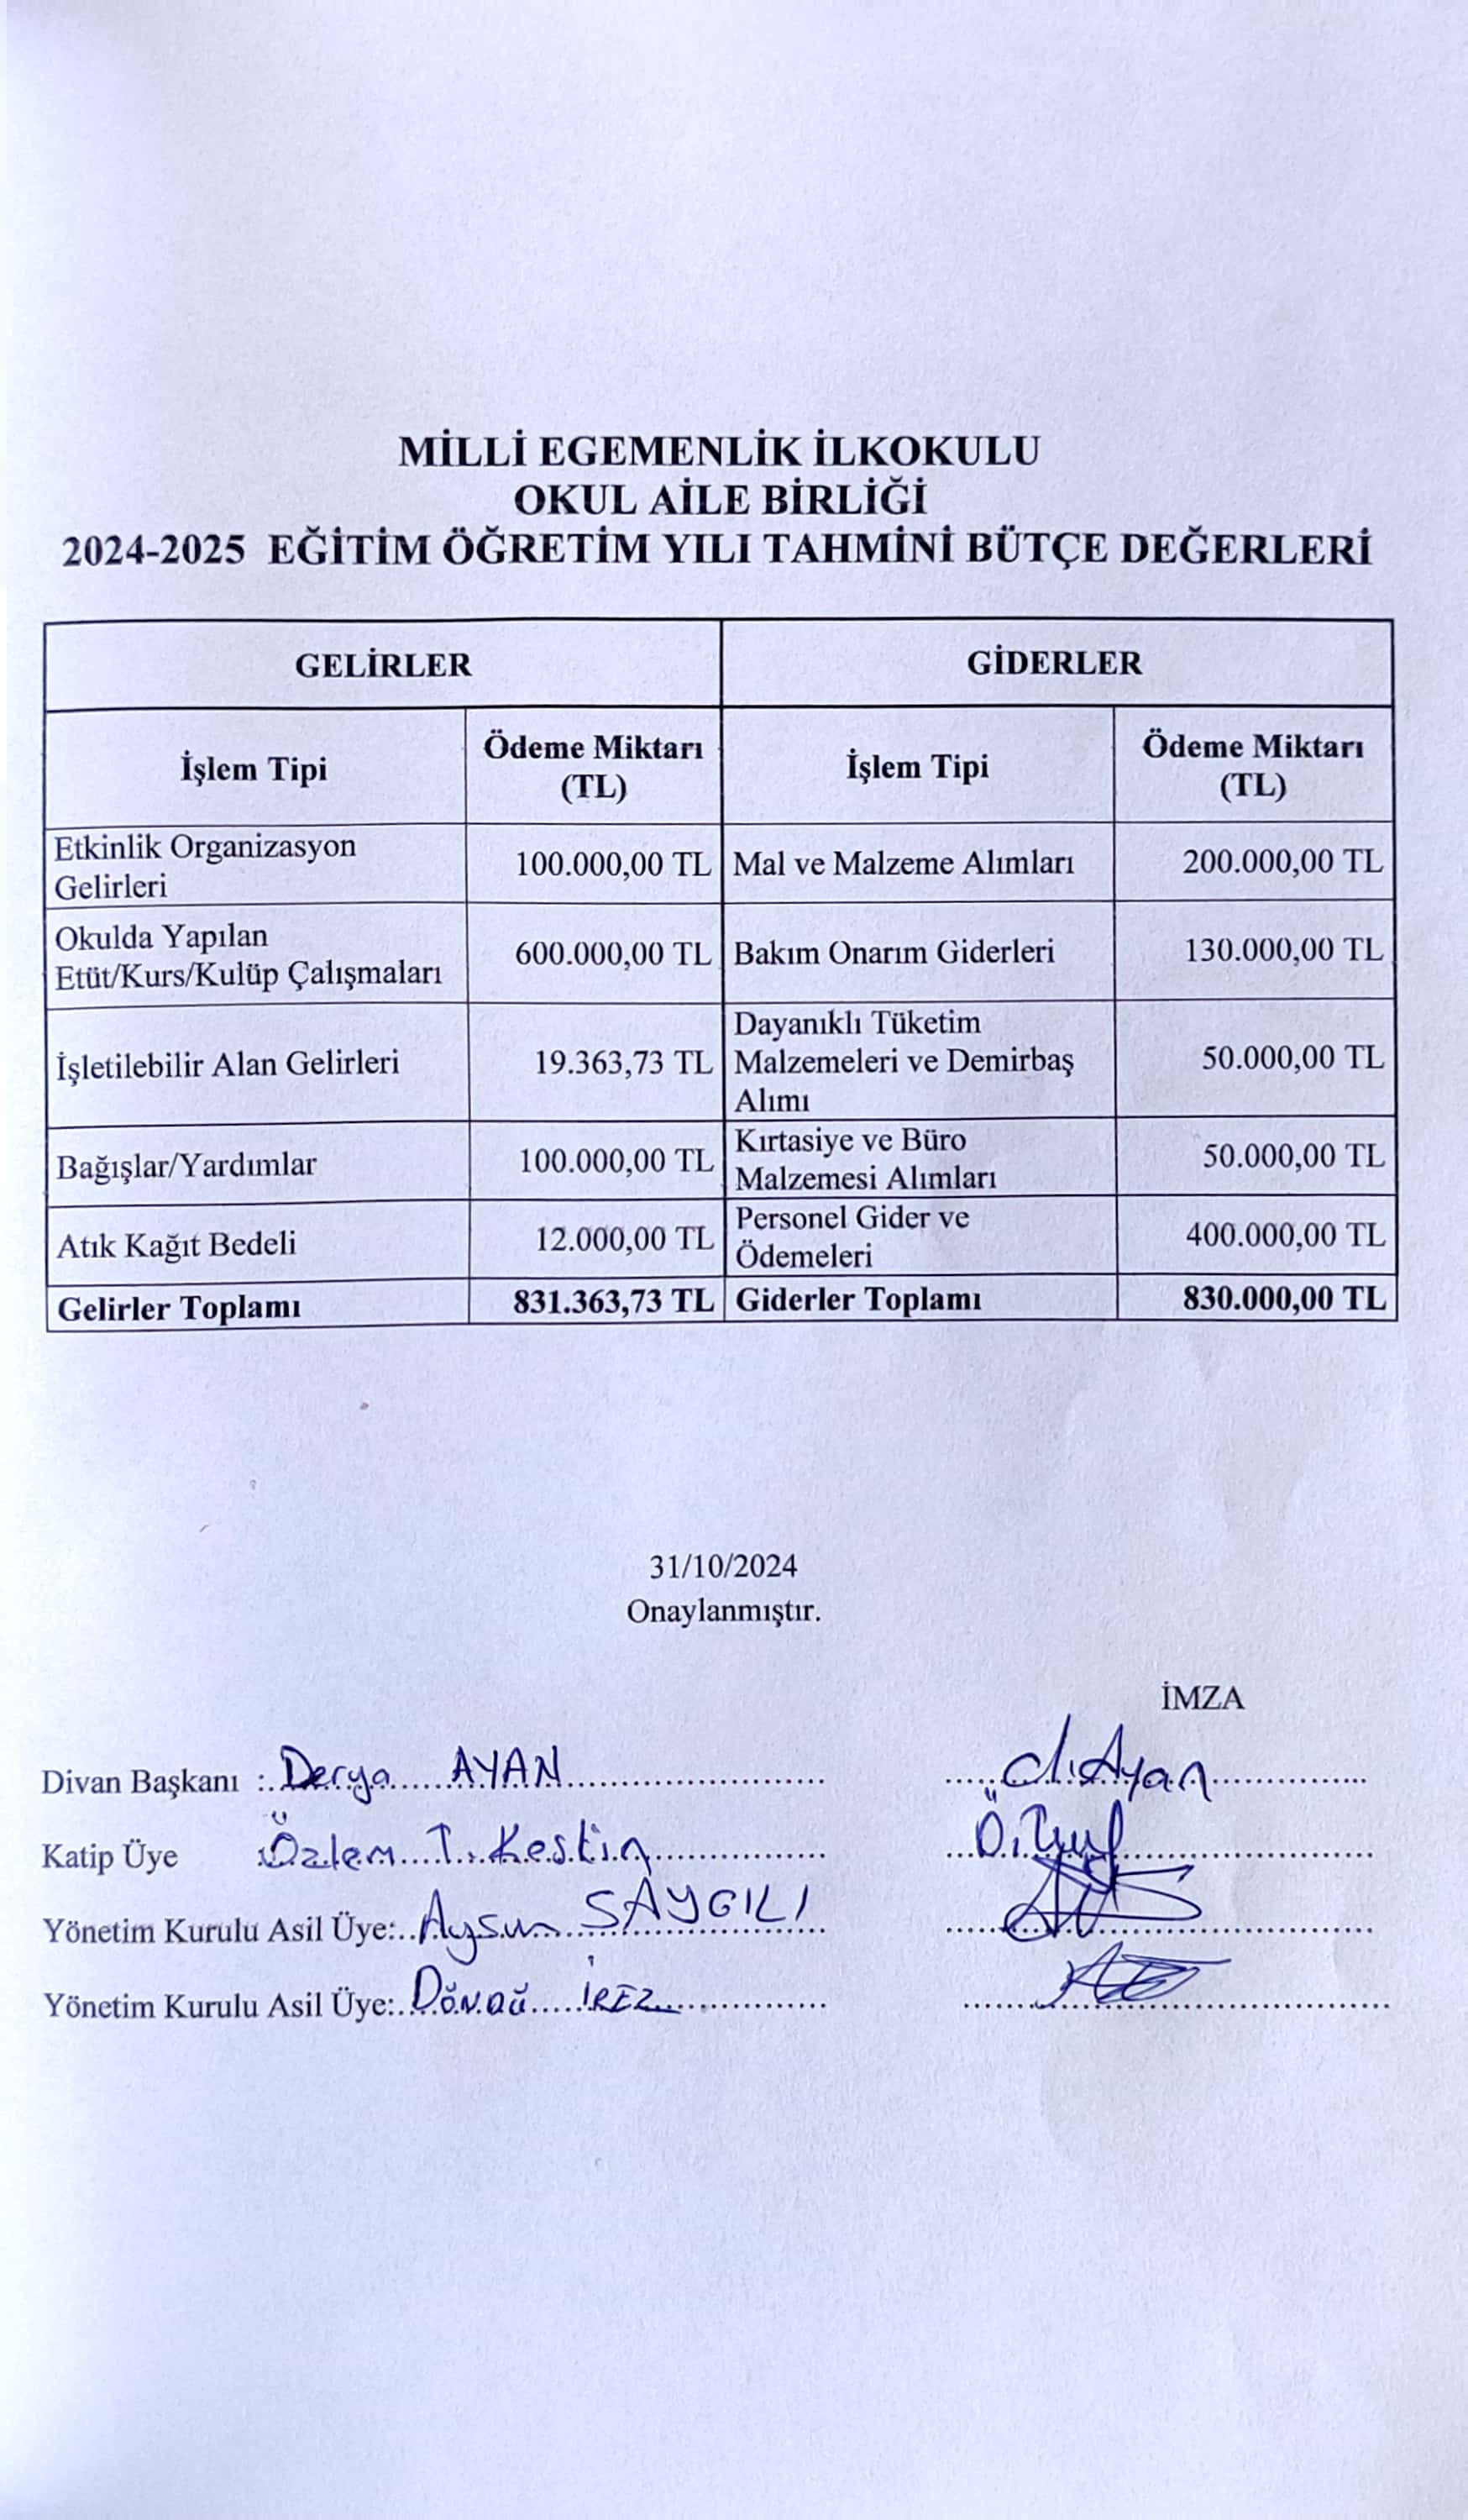 MİLLİ EGEMENLİK İLKOKULU
OKUL AİLE BİRLİĞİ
2024-2025 EĞİTİM ÖĞRETİM YILI TAHMİNİ BÜTÇE DEĞERLERİ
GELİRLER GİDERLER
İşlem Tipi Ödeme Miktarı (TL) İşlem Tipi Ödeme Miktarı (TL)
Etkinlik Organizasyon
Gelirleri
100.000,00 TL Mal ve Malzeme Alımları 200.000,00 TL
Okulda Yapılan
Etüt/Kurs/Kulüp Çalışmaları
600.000,00 TL Bakım Onarım Giderleri 130.000,00 TL
İşletilebilir Alan Gelirleri 19.363,73 TL
Dayanıklı Tüketim
Malzemeleri ve Demirbaş
Alımı
50.000,00 TL
Bağışlar/Yardımlar 100.000,00 TL
Kırtasiye ve Büro
Malzemesi Alımları
50.000,00 TL
Atık Kağıt Bedeli 12.000,00 TL
Personel Gider ve
Ödemeleri
400.000,00 TL
Gelirler Toplamı 831.363,73 TL Giderler Toplamı 830.000,00 TL
31/10/2024
Onaylanmıştır.
İMZA
Divan Başkanı : Derya AYAN d.Ayan
Katip Üye : Özlem T. Keskin
Yönetim Kurulu Asil Üye: Aysun SAYGILI
Yönetim Kurulu Asil Üye: Döndü İREZ